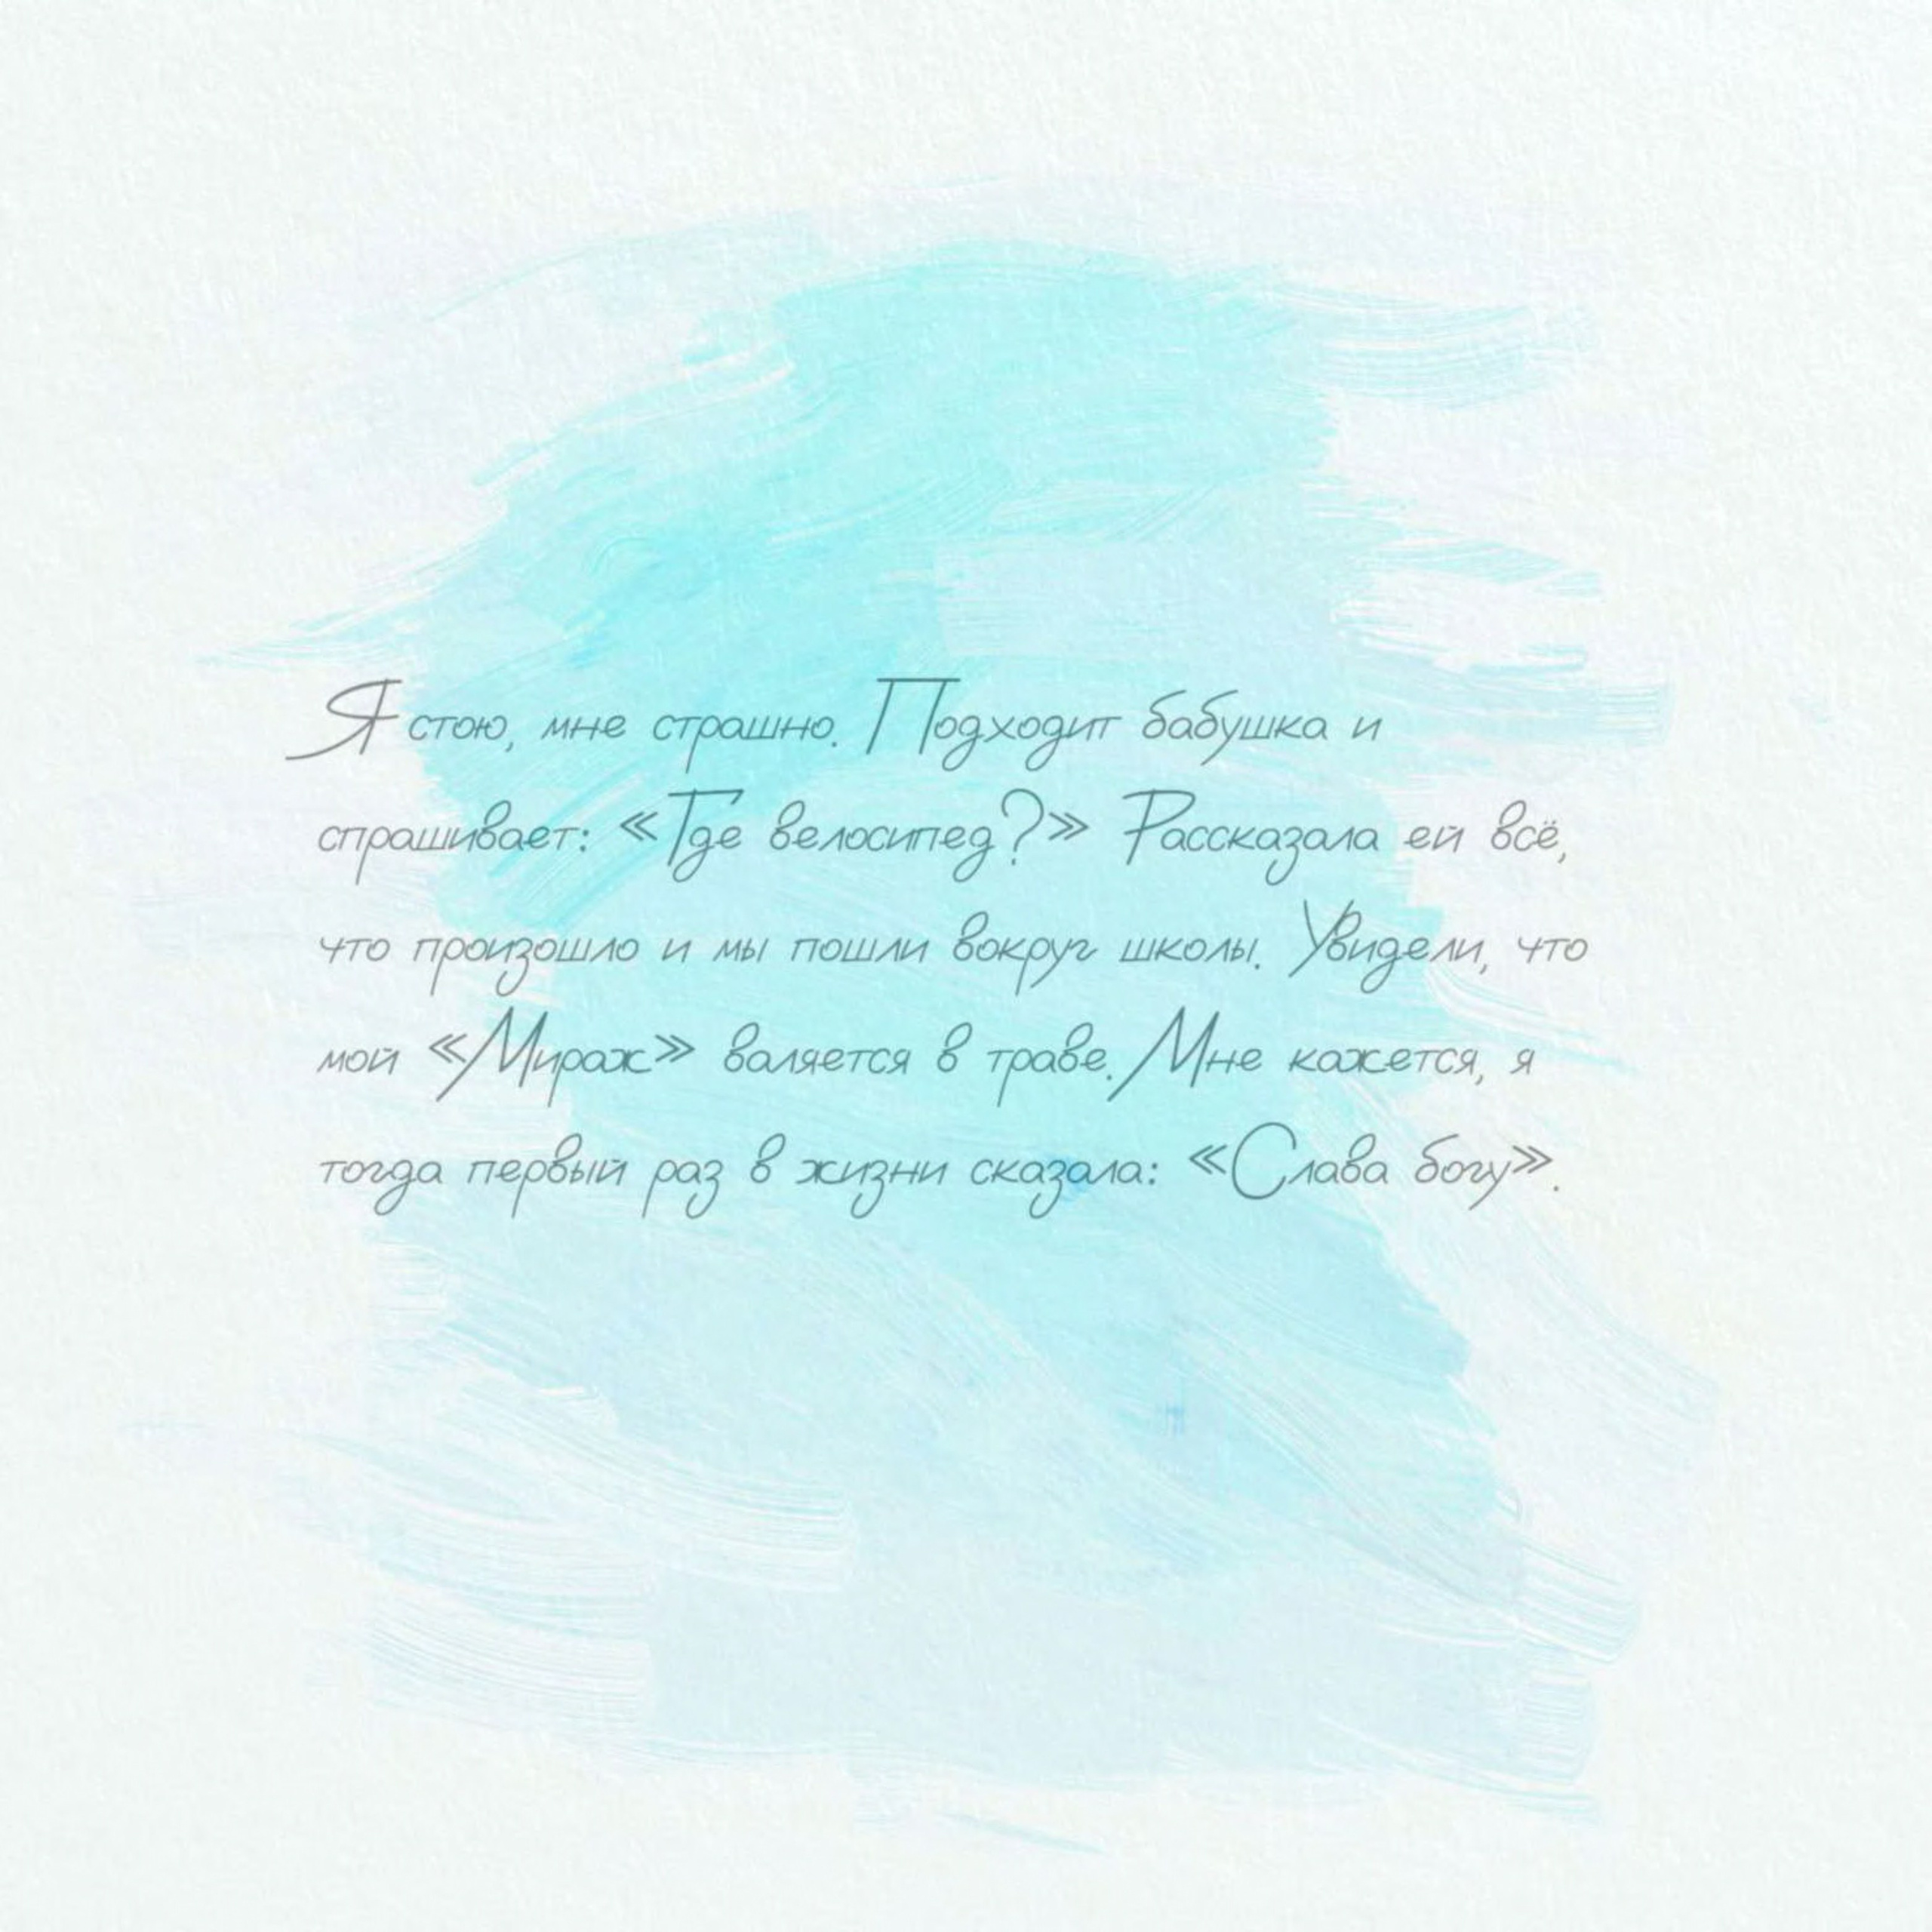 Я стою, мне страшно. Подходит бабушка и
спрашивает: «Где велосипед?» Рассказала ей всё,
что произошло и мы пошли вокруг школы. Увидели, что
мой «Мираж» валяется в траве. Мне кажется, я
тогда первый раз в жизни сказала: «Слава богу».